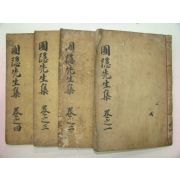 圃隱先生集 卷之一
圃隱先生集 卷之二
圃隱先生集 卷之三
圃隱先生集 卷之四